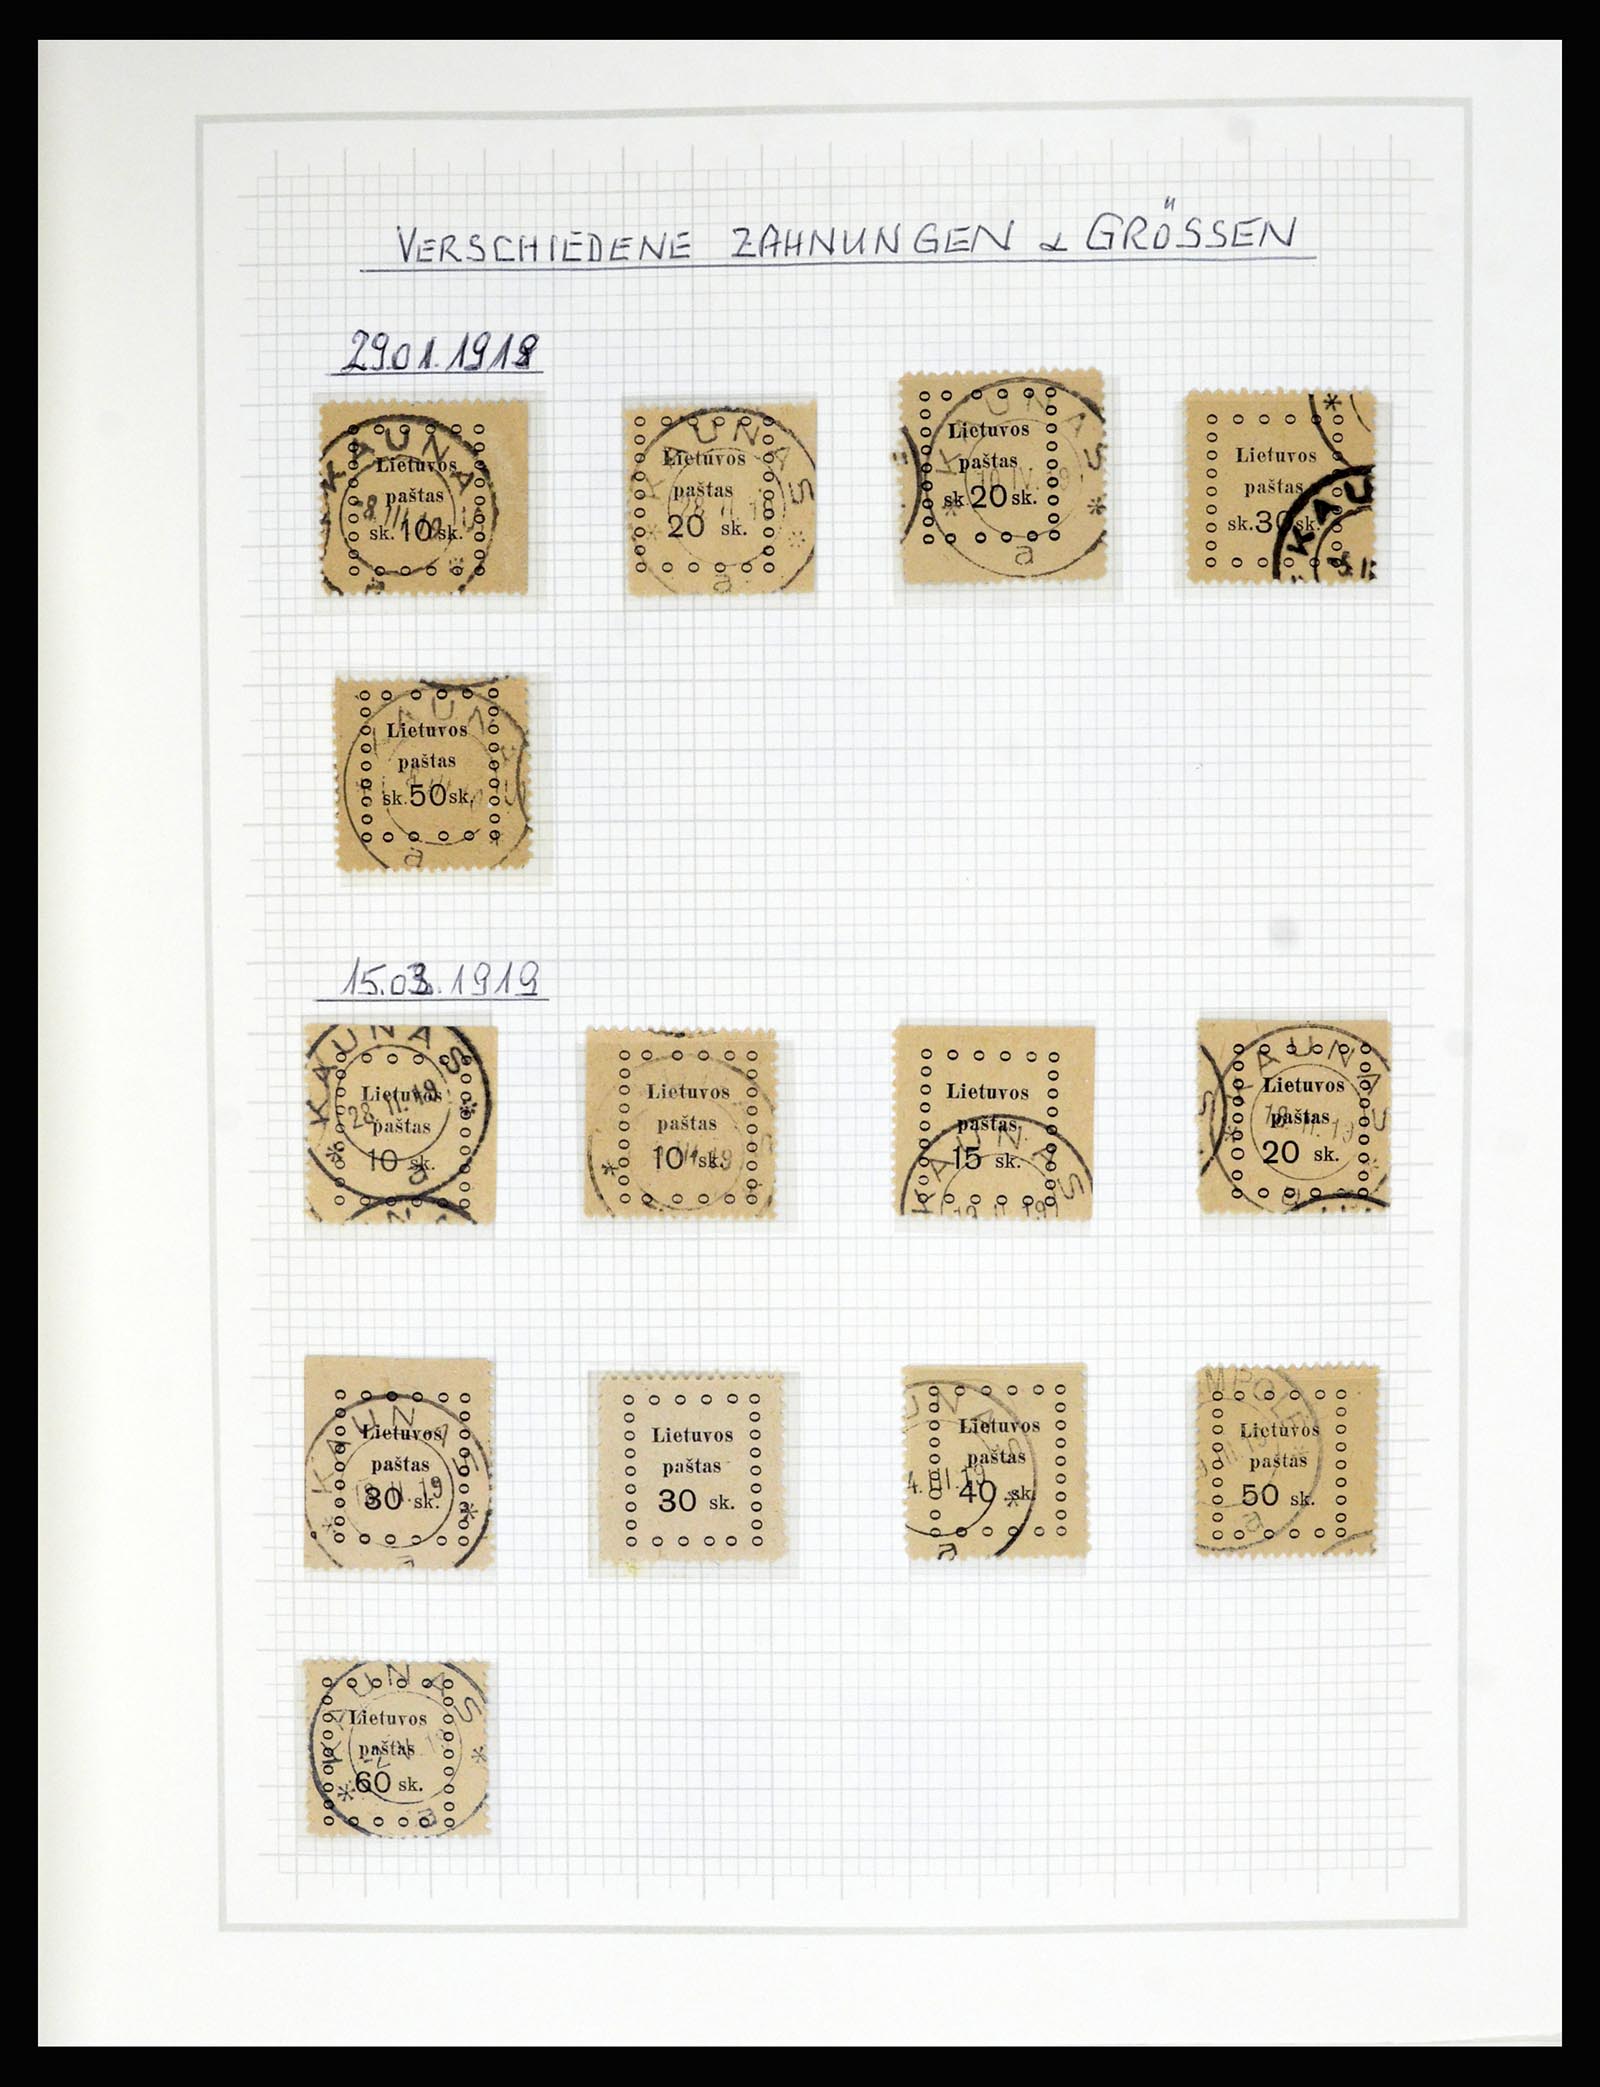 VERSCHIEDENE ZAHNUNGEN & GRÖSSEN
29.01.1919
KAUNAS
Lietuvos
paštas
sk. 10 sk.
KAUNAS
Lietuvos
paštas
20 sk.
a
KAUNAS
Lietuvos
paštas
sk. 20 sk.
a
Lietuvos
paštas
sk. 30 sk.
KAU
KAUNAS
Lietuvos
paštas
sk. 50 sk.
a
15.03.1919
KAUNAS
Lietuvos
28.II.19
paštas
10 sk.
a
Lietuvos
paštas
10 sk.
Lietuvos
paštas
15 sk.
KAUNAS
KAUNAS
Lietuvos
paštas
20 sk.
a
KAUNAS
Lietuvos
paštas
30 sk.
a
Lietuvos
paštas
30 sk.
UNAS
Lietuvos
paštas
4.III.19
40 sk.
a
MPOLE
Lietuvos
paštas
50 sk.
a
KAUNAS
Lietuvos
paštas
60 sk.
a